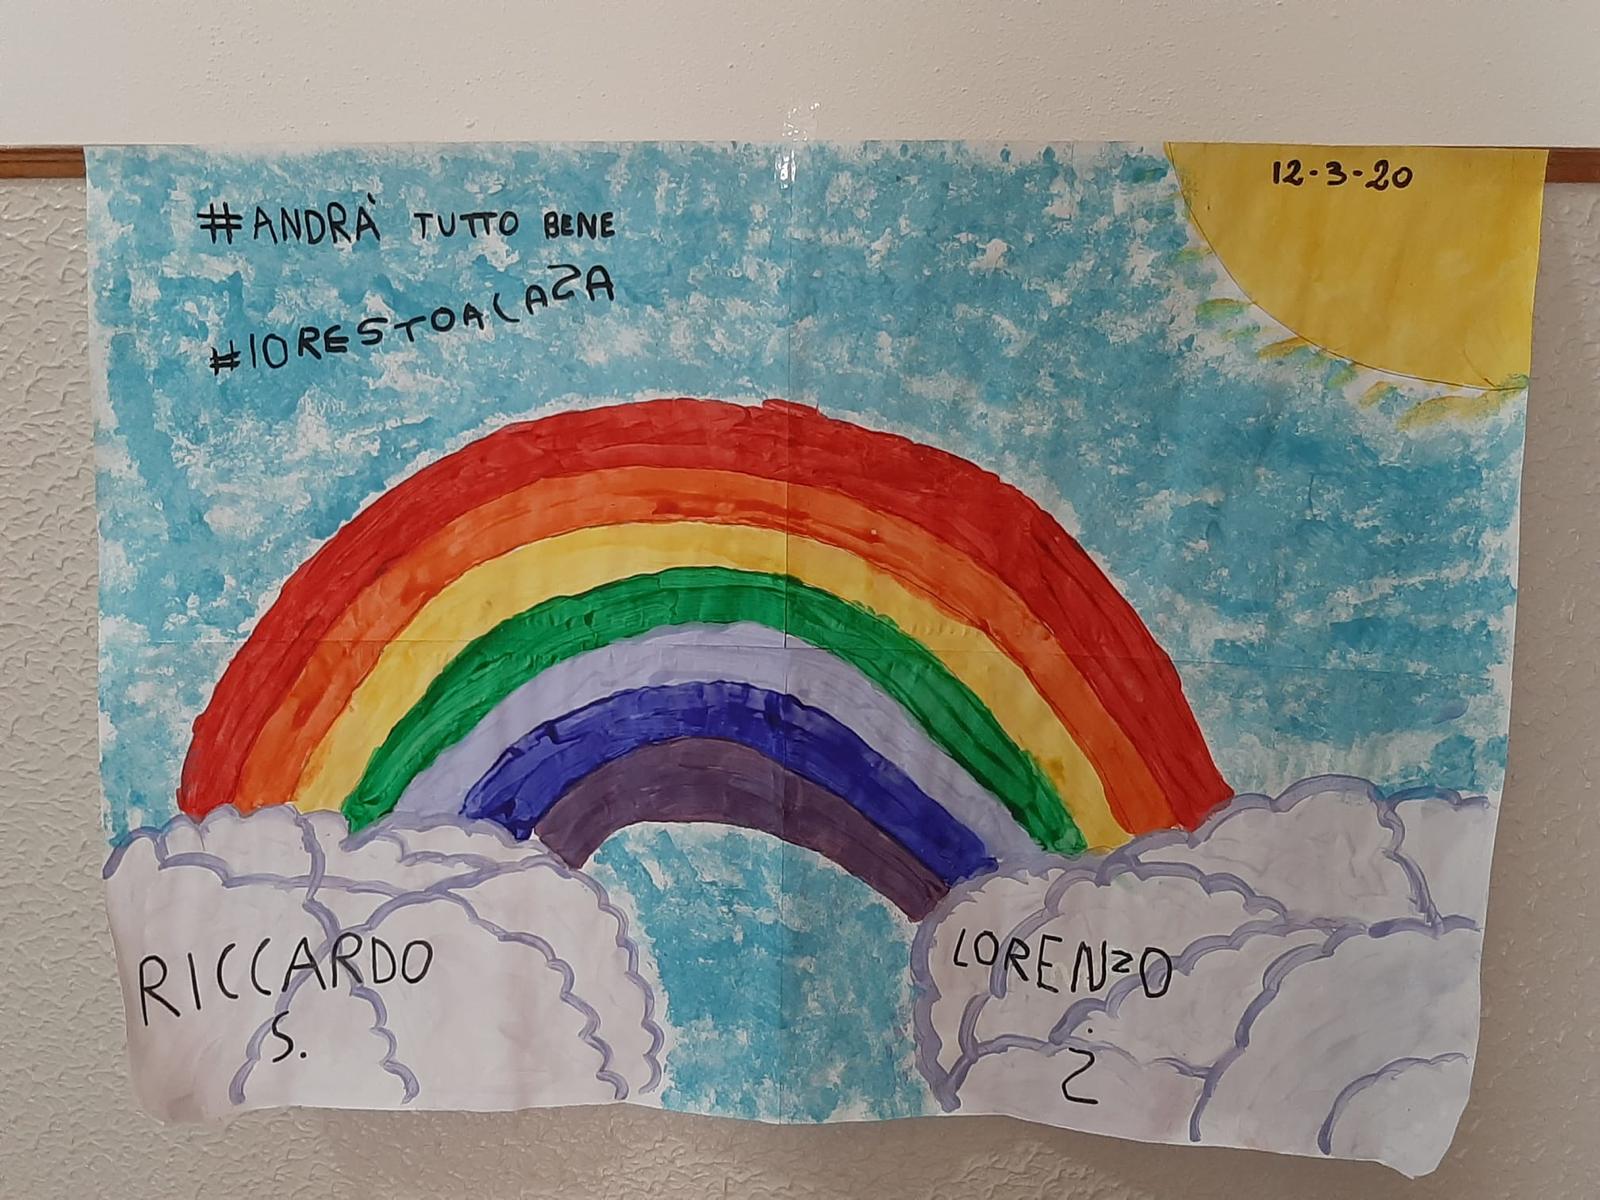 12-3-20
#ANDRÀ TUTTO BENE
#IORESTOACASA
RICCARDO
S.
LORENZO
S.